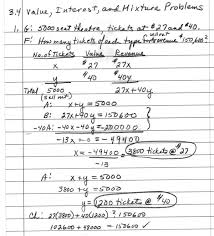 3.4 Value, Interest, and Mixture Problems
1. G: 5000 seat theatre, tickets at $27 and $40.
F: How many tickets of each type for sellout revenue $150,600?
No. of Tickets Value Revenue
x $27 $27x
y $40 $40y
Total 5000 27x + 40y
(sell out)
A: x + y = 5000
B: 27x + 40y = 150600
-40A: -40x - 40y = -200000
-13x = -49400
x = -49400 = 3800 tickets @ $27
-13
A: x + y = 5000
3800 + y = 5000
y = 1200 tickets @ $40
Ch: 27(3800) + 40(1200) ? 150600
102600 + 48000 = 150600 ✓